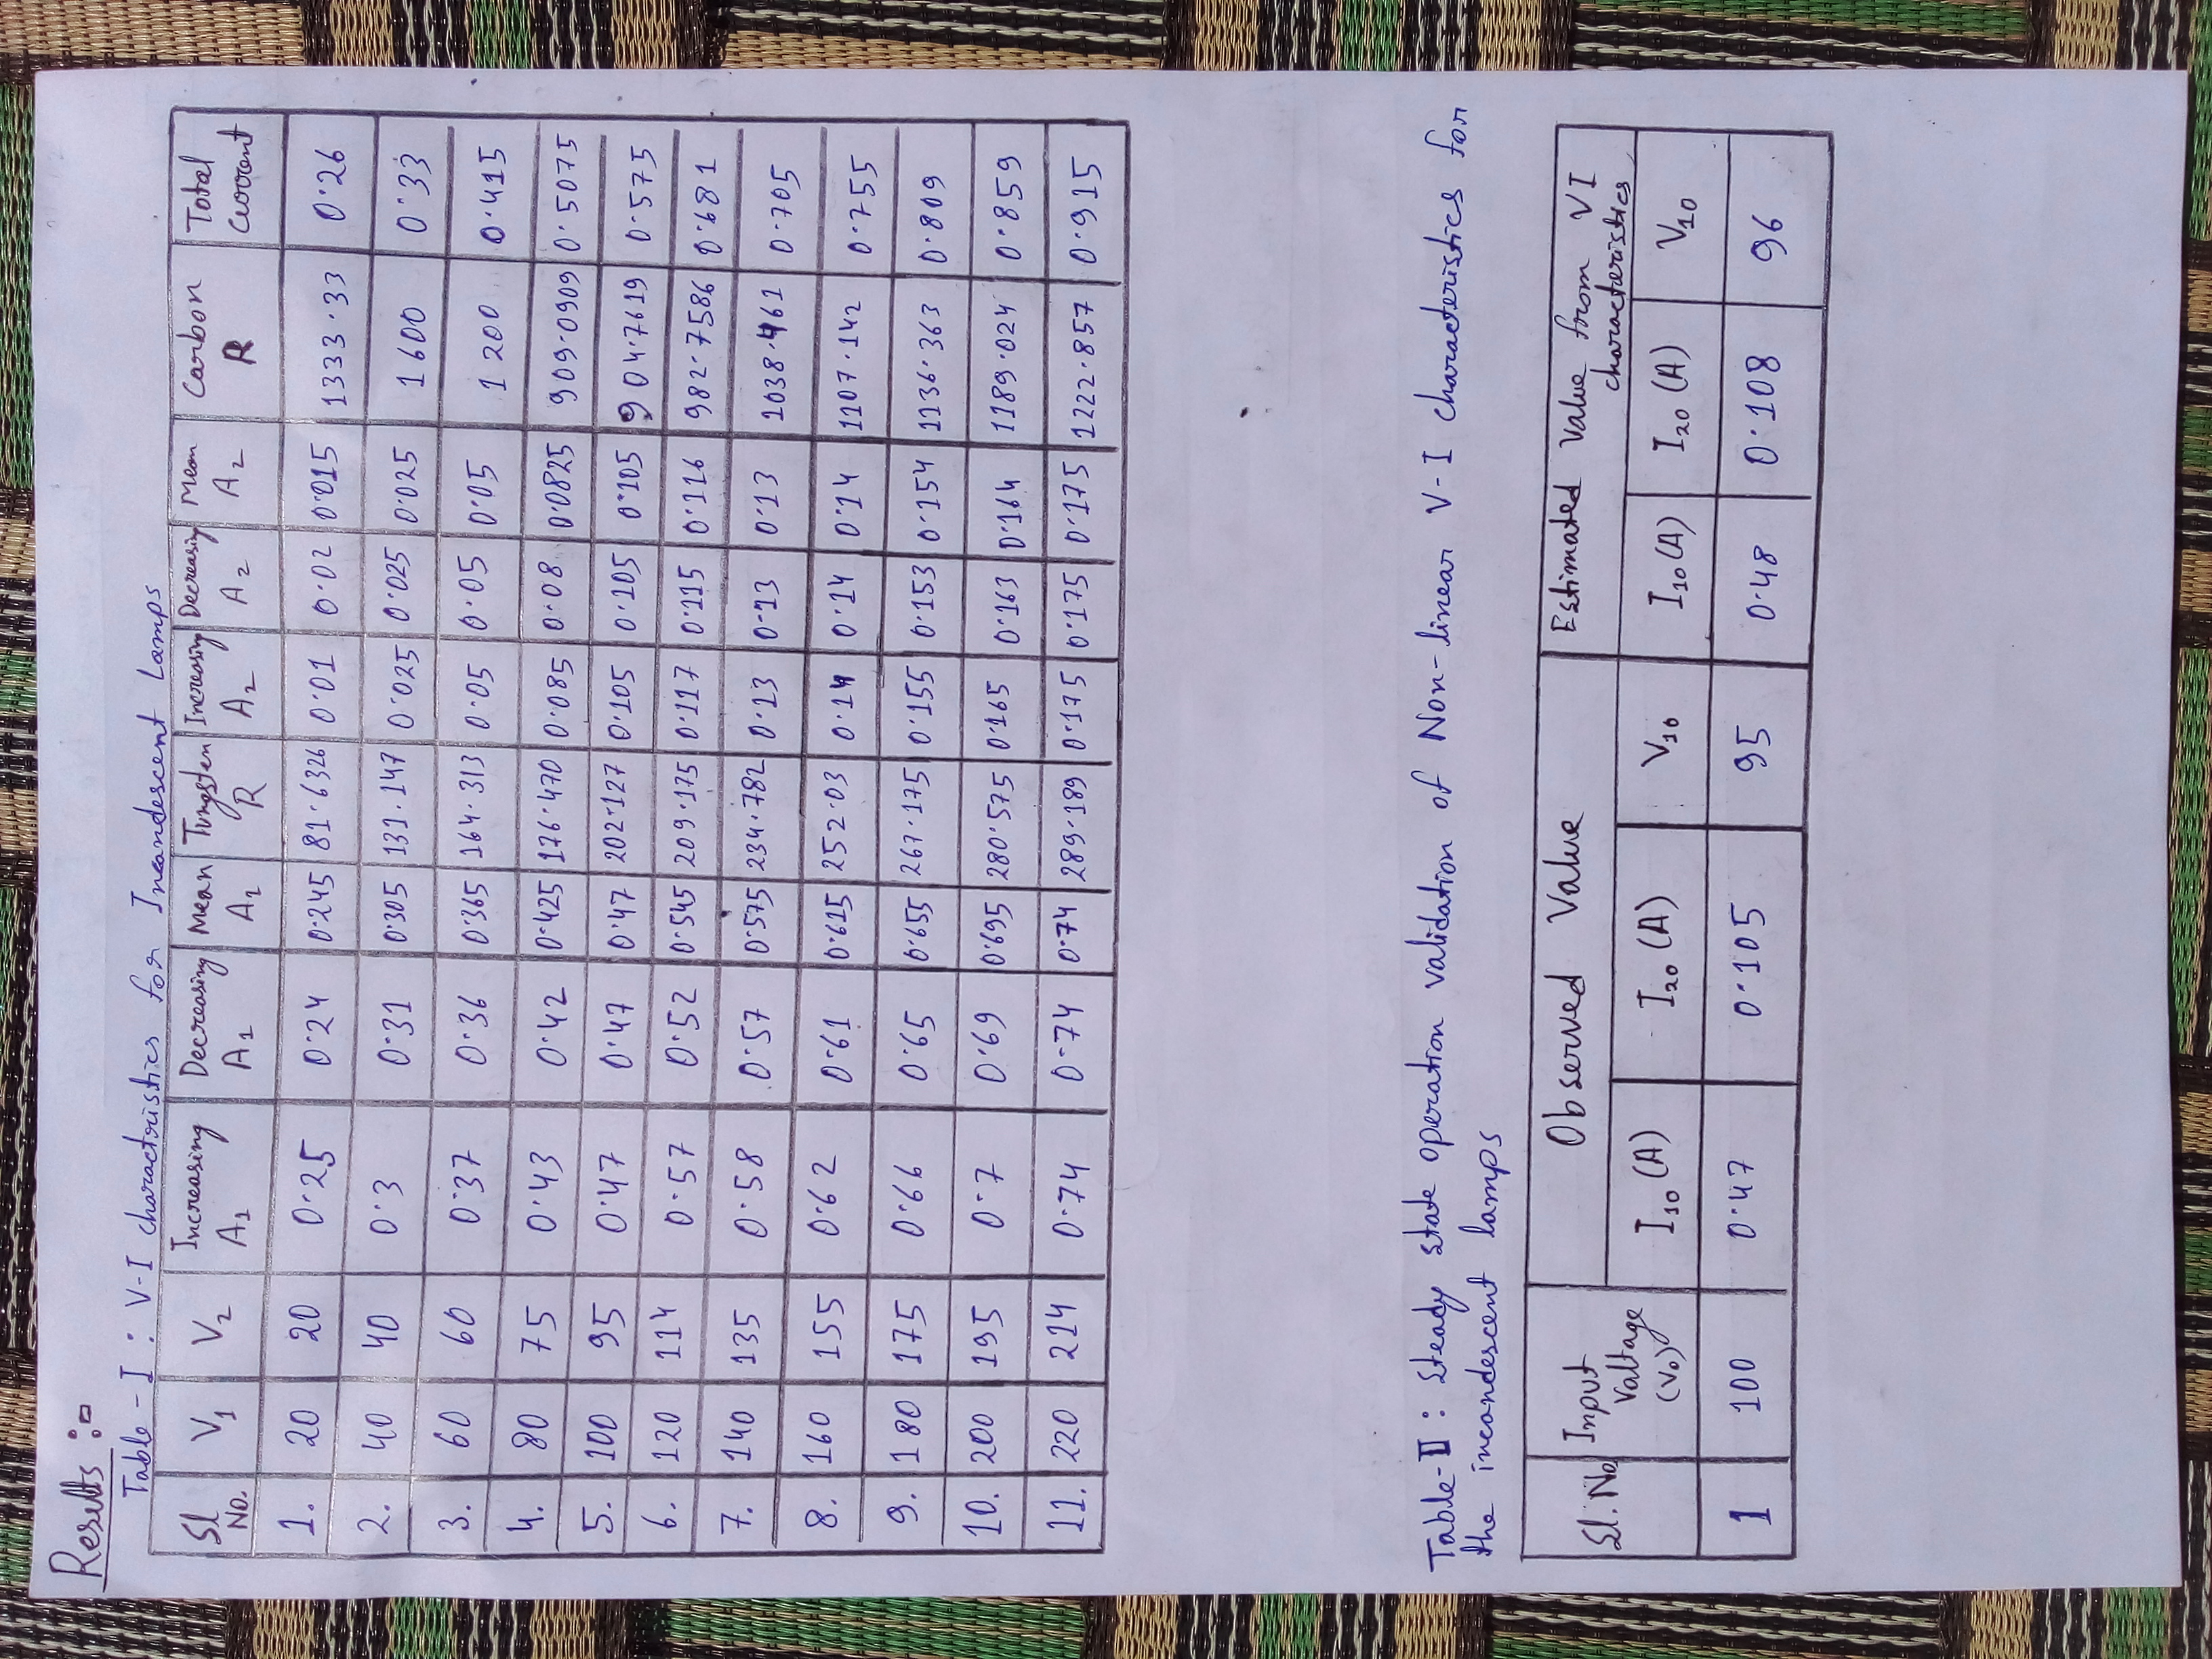 Results :-
Table - I : V-I charactoristics for Incandescent Lamps
Sl No. V1 V2 Increasing A1 Decreasing A1 Mean A1 Tungsten R Increasing A2 Decreasing A2 Mean A2 Carbon R Total current
1. 20 20 0.25 0.24 0.245 81.6326 0.01 0.02 0.015 1333.33 0.26
2. 40 40 0.3 0.31 0.305 131.147 0.025 0.025 0.025 1600 0.33
3. 60 60 0.37 0.36 0.365 164.313 0.05 0.05 0.05 1200 0.415
4. 80 75 0.43 0.42 0.425 176.470 0.085 0.08 0.0825 909.0909 0.5075
5. 100 95 0.47 0.47 0.47 202.127 0.105 0.105 0.105 904.7619 0.575
6. 120 114 0.57 0.52 0.545 209.175 0.117 0.115 0.116 982.7586 0.681
7. 140 135 0.58 0.57 0.575 234.782 0.13 0.13 0.13 1038.461 0.705
8. 160 155 0.62 0.61 0.615 252.03 0.14 0.14 0.14 1107.142 0.755
9. 180 175 0.66 0.65 0.655 267.175 0.155 0.153 0.154 1136.363 0.809
10. 200 195 0.7 0.69 0.695 280.575 0.165 0.163 0.164 1189.024 0.859
11. 220 214 0.74 0.74 0.74 289.189 0.175 0.175 0.175 1222.857 0.915
Table-II : Steady state operation validation of Non-linear V-I characteristics for
the incandescent lamps
Sl. No Input Valtage (V0) Observed Value Estimated Value from VI characteristics
I10 (A) I20 (A) V10 I10 (A) I20 (A) V10
1 100 0.47 0.105 95 0.48 0.108 96